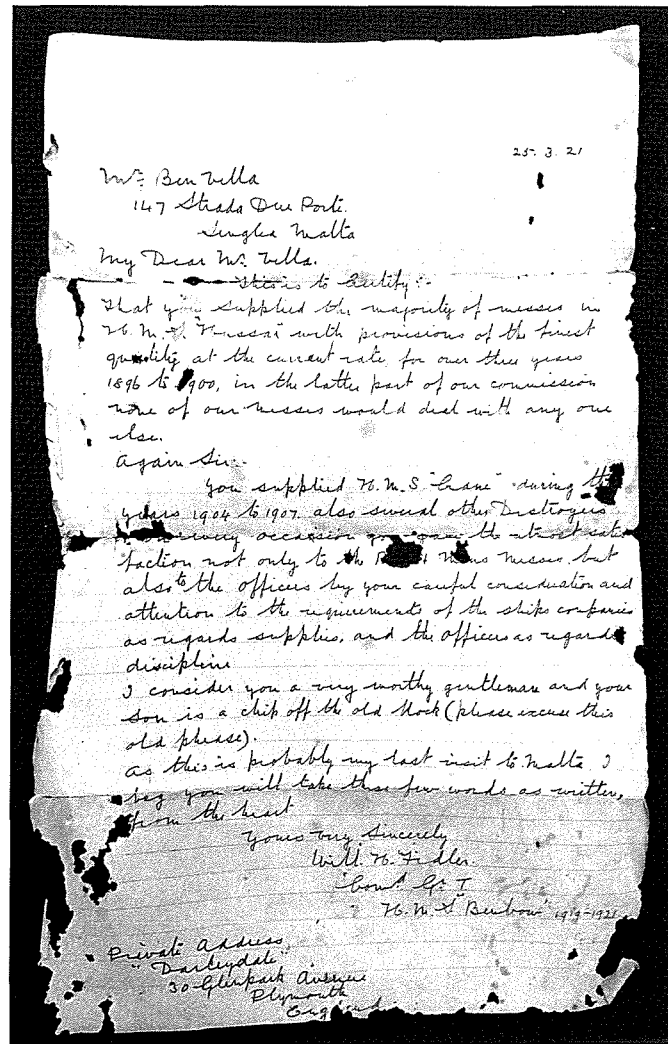 25-3.21
Mr. Ben Villa
147 Strada Due Porte.
Senglea Malta
My Dear Mr. Villa.
This is to Certify:-
That you supplied the majority of messes in
H.M.S. Hussar with provisions of the finest
quality at the current rate, for over three years
1896 to 1900, in the latter part of our commission
none of our messes would deal with any one
else.
Again Sir:-
You supplied H.M.S. "Crane" during the
years 1904 to 1907 also several other Destroyers
every occasion the utmost satis
faction not only to the Mens Messes, but
also to the officers by your careful consideration and
attention to the requirements of the ships companies
as regards supplies, and the officers as regards
discipline
I consider you a very worthy gentleman and your
son is a chip off the old block (please excuse this
old phrase).
As this is probably my last visit to Malta I
beg you will take these few words as written,
from the heart
Yours Very Sincerely
Will. H. Fidler.
H.M.S. Benbow 1919-1921
Private Address
"Darleydale"
30 Glenpark Avenue
Plymouth
England